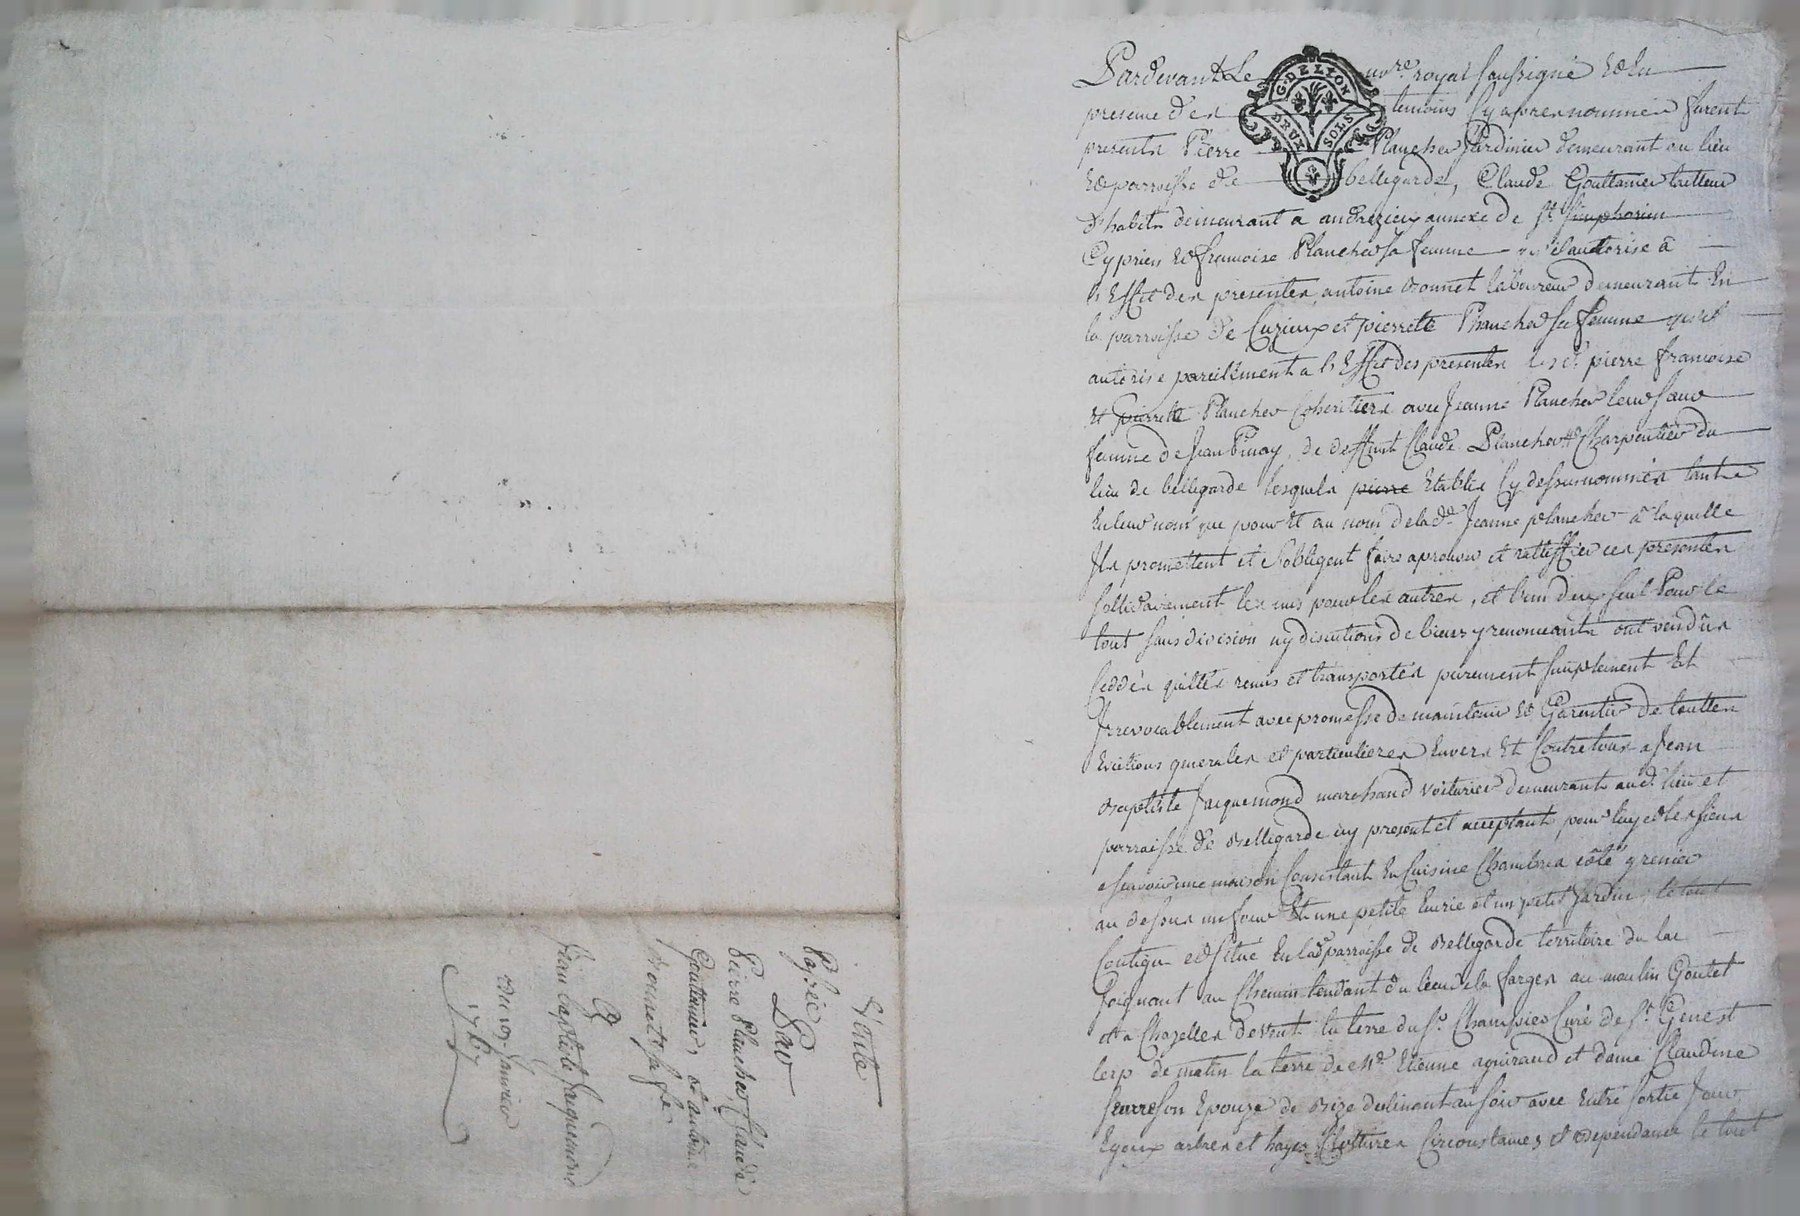 Vente
Passée Par
Pierre Plancher, Claude
Gouttenier, & antoine
Bonnet & sa fe.
A
Jean baptiste Jacquemond
du 19 Janvier
1767
G. DE LYON
DEUX SOLS
Pardevant Le royal soussigné Et En
presence des temoins Cy apres nommés furent
presents Pierre Plancher Jardinier demeurant au lieu
Et parroisse de bellegarde, Claude Gouttenier tailleur
d'habits demeurant a andrezieu annexe de St. Simphorien
Cyprien Et francoise Plancher sa femme autorise à
l'Effet des presentes, antoine bonnet laboureur demeurant En
la parroisse de Cuzieux et pierrette Plancher sa femme quil
autorise pareillement a l'Effet des presentes les d. pierre francoise
et pierrette Plancher Coheritiers avec Jeanne Plancher leur sœur
femme de Jean Pinay, de deffunt Claude Plancher Charpentier du
lieu de bellegarde lesquels pierre Etablis Cy dessus nommés tant
En leur nom que pour Et au nom de lade. Jeanne plancher à laquelle
Ils promettent et s'obligent faire aprouver et rattiffier ces presentes
sollidairement les uns pour les autres, et l'un d'eux seul Pour le
tout sans division ny discutions de biens y renonceants ont vendus
Ceddés quittés remis et transportés purement simplement Et
Irrevocablement avec promesse de maintenir Et Garentir de touttes
Evictions generales et particulieres Envers Et Contre tous a Jean
Baptiste Jacquemond marchand voiturier demeurant aud. lieu et
parroisse de Bellegarde icy present et acceptant pour luy et les siens
a scavoir une maison Consistant En Cuisine Chambre à côté grenier
au dessus un four Et une petite Ecurie et un petit Jardin, le tout
Contigu et Situé En lade parroisse de Bellegarde territoire du lac
Joignant au Chemin tendant du lieu de la farges au moulin Goutet
et a Chazelles de vent la terre du Sr. Champier Curé de St. Genest
lerp de matin la terre de Me. Etienne aguiraud et dame Claudine
son Epouze de Bize declinant au soir avec Entré sortie Jour
Egoux arbres et hayes Clotures Circonstances et dependances le tout